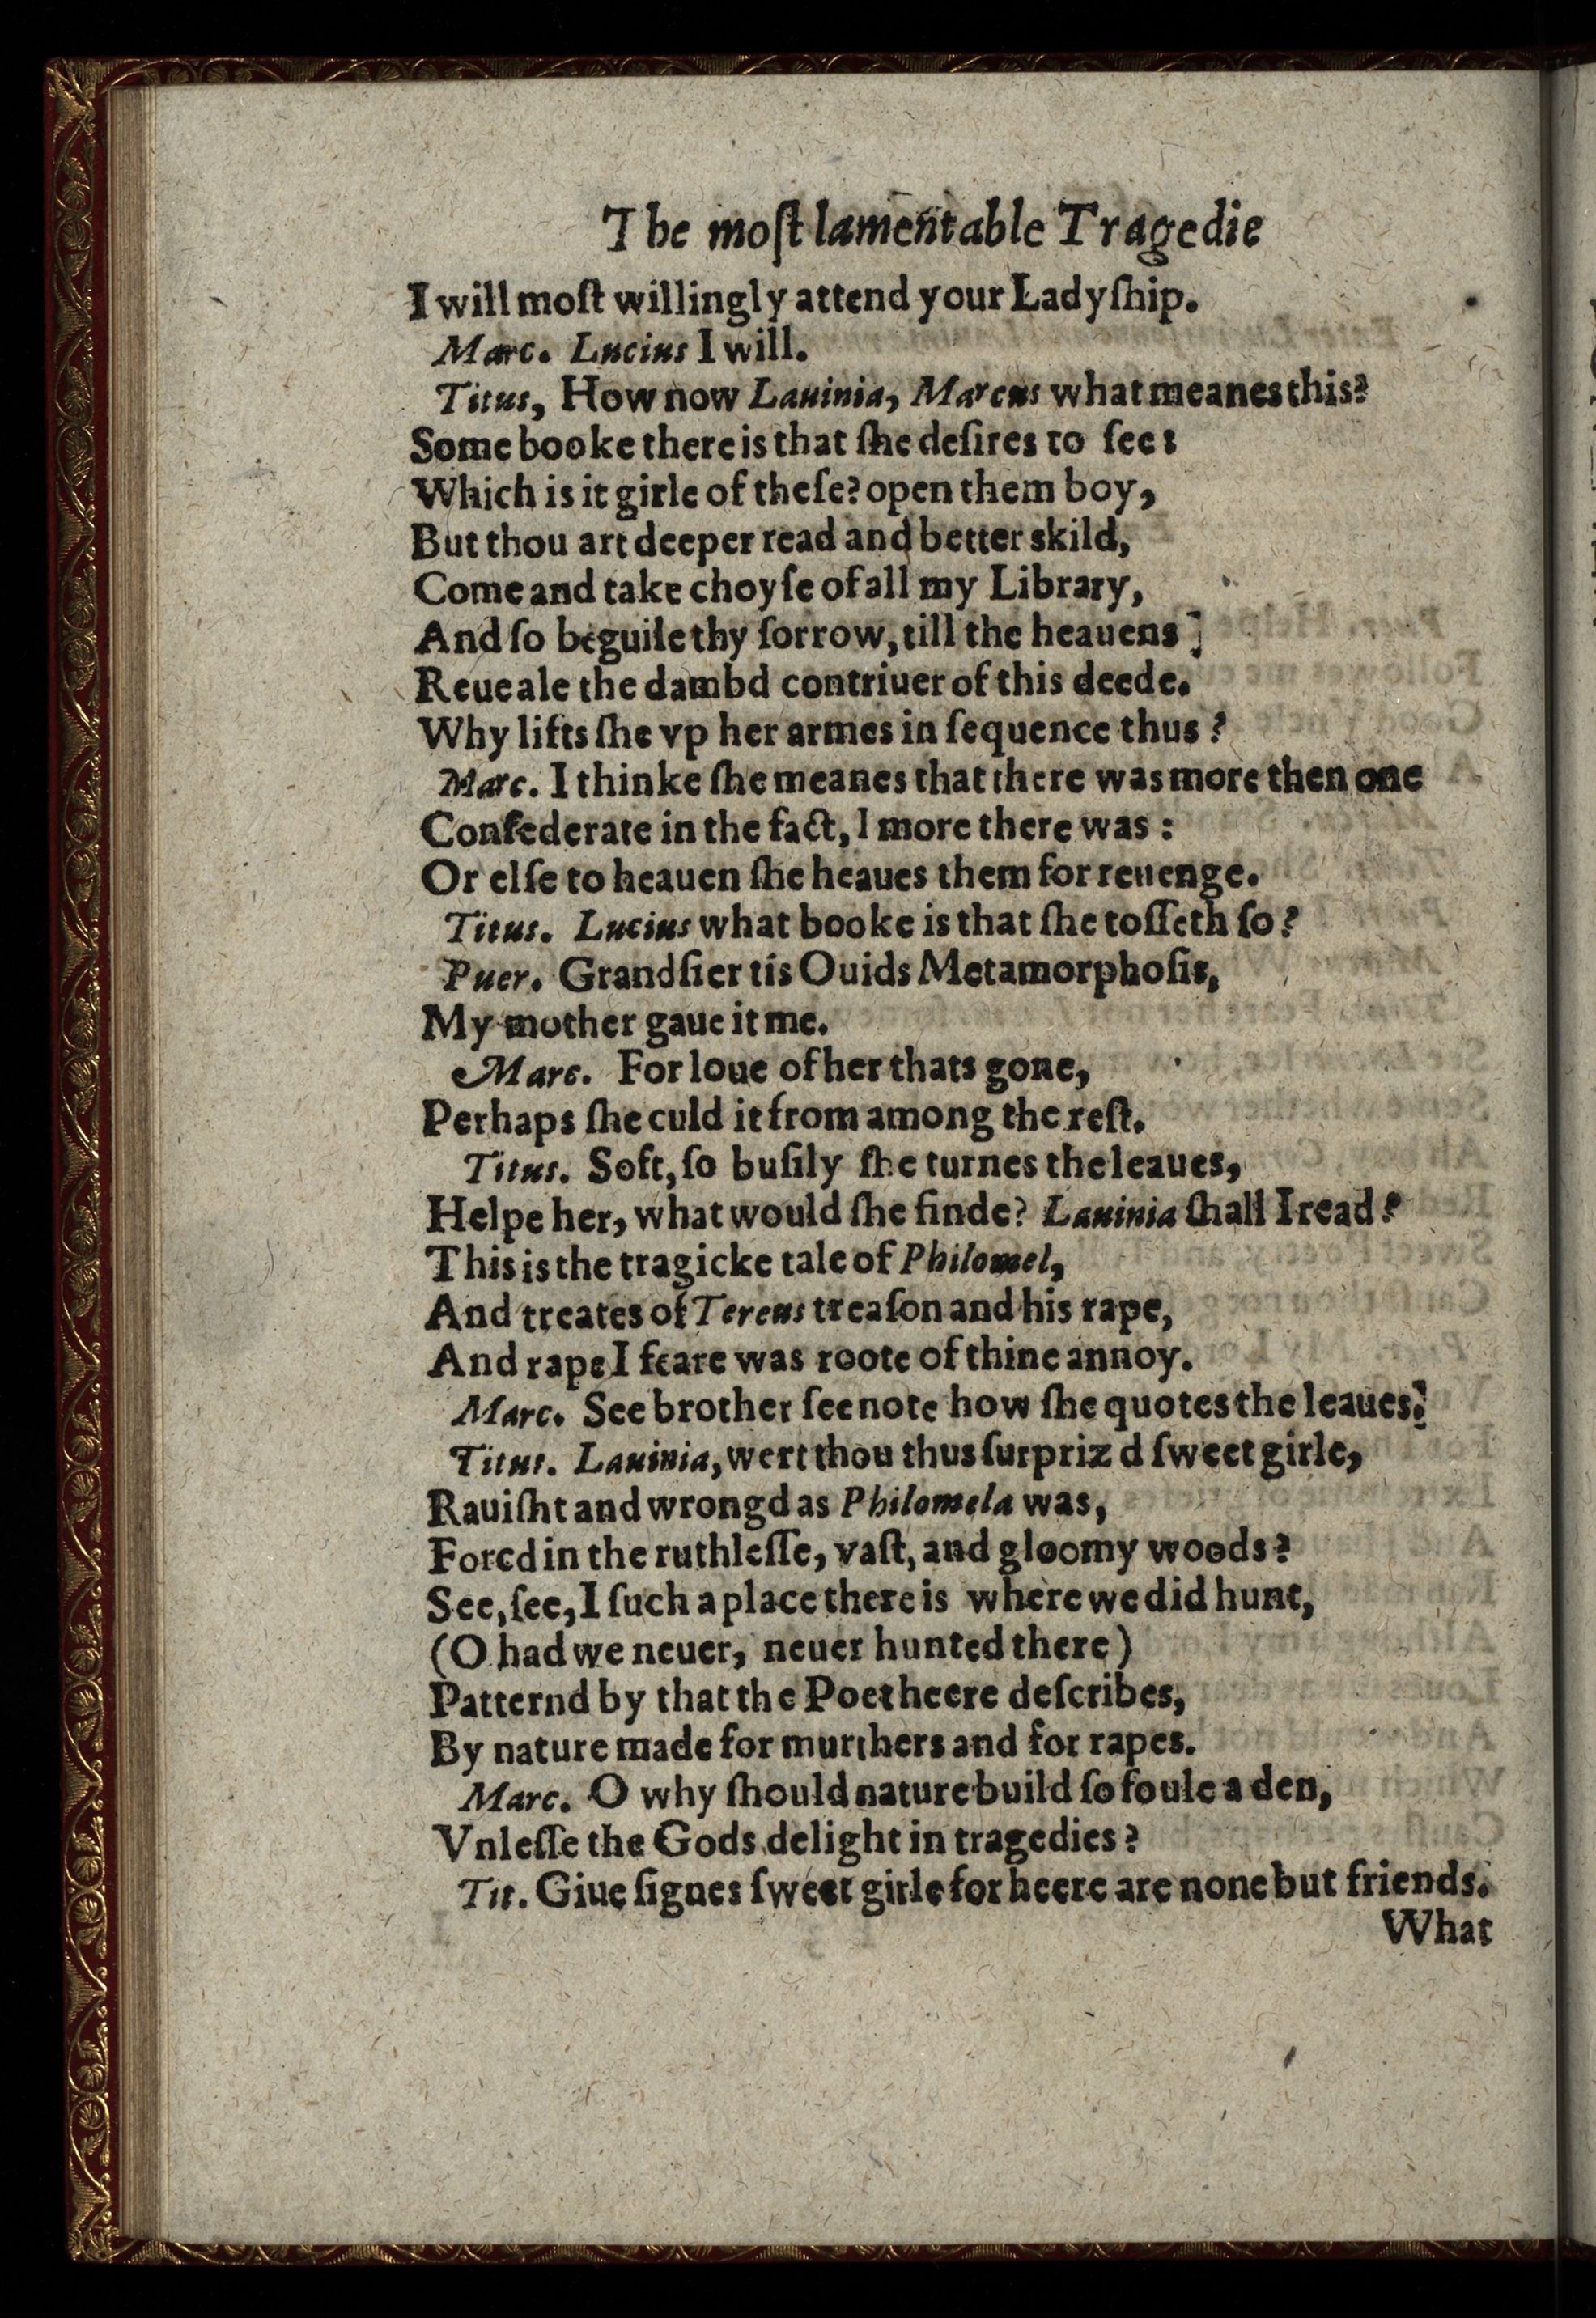 The moſt lamentable Tragedie
I will moſt willingly attend your Ladyſhip.
Marc. Lucius I will.
Titus, How now Lauinia, Marcus what meanes this?
Some booke there is that ſhe deſires to ſee:
Which is it girle of theſe? open them boy,
But thou art deeper read and better skild,
Come and take choyſe of all my Library,
And ſo beguile thy ſorrow, till the heauens]
Reueale the dambd contriuer of this deede.
Why lifts ſhe vp her armes in ſequence thus?
Marc. I thinke ſhe meanes that there was more then one
Confederate in the fact, I more there was:
Or elſe to heauen ſhe heaues them for reuenge.
Titus. Lucius what booke is that ſhe toſſeth ſo?
Puer. Grandſier tis Ouids Metamorphoſis,
My mother gaue it me.
Marc. For loue of her thats gone,
Perhaps ſhe culd it from among the reſt.
Titus. Soft, ſo buſily ſhe turnes the leaues,
Helpe her, what would ſhe finde? Lauinia ſhall I read?
This is the tragicke tale of Philomel,
And treates of Tereus treaſon and his rape,
And rape I feare was roote of thine annoy.
Marc. See brother ſee note how ſhe quotes the leaues.]
Titus. Lauinia, wert thou thus ſurpriz d ſweet girle,
Rauiſht and wrongd as Philomela was,
Forcd in the ruthleſſe, vaſt, and gloomy woods?
See, ſee, I ſuch a place there is where we did hunt,
(O had we neuer, neuer hunted there)
Patternd by that the Poet heere deſcribes,
By nature made for murthers and for rapes.
Marc. O why ſhould nature build ſo foule a den,
Vnleſſe the Gods delight in tragedies?
Tit. Giue ſignes ſweet girle for heere are none but friends.
What